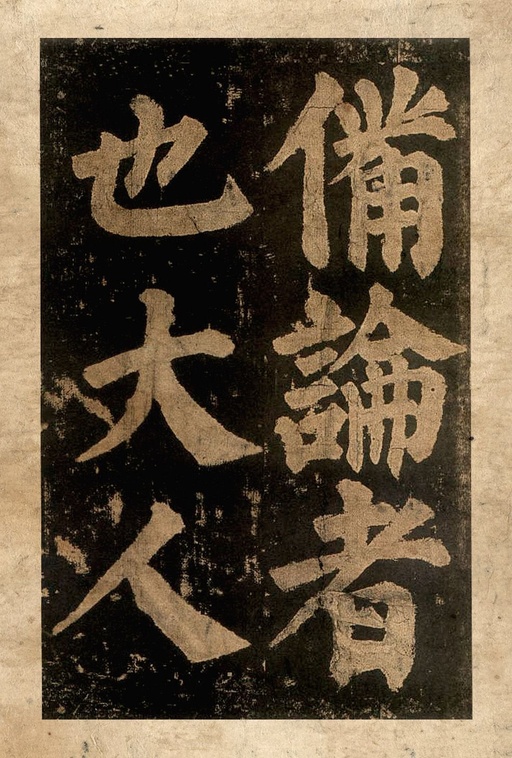 備論者
也大人